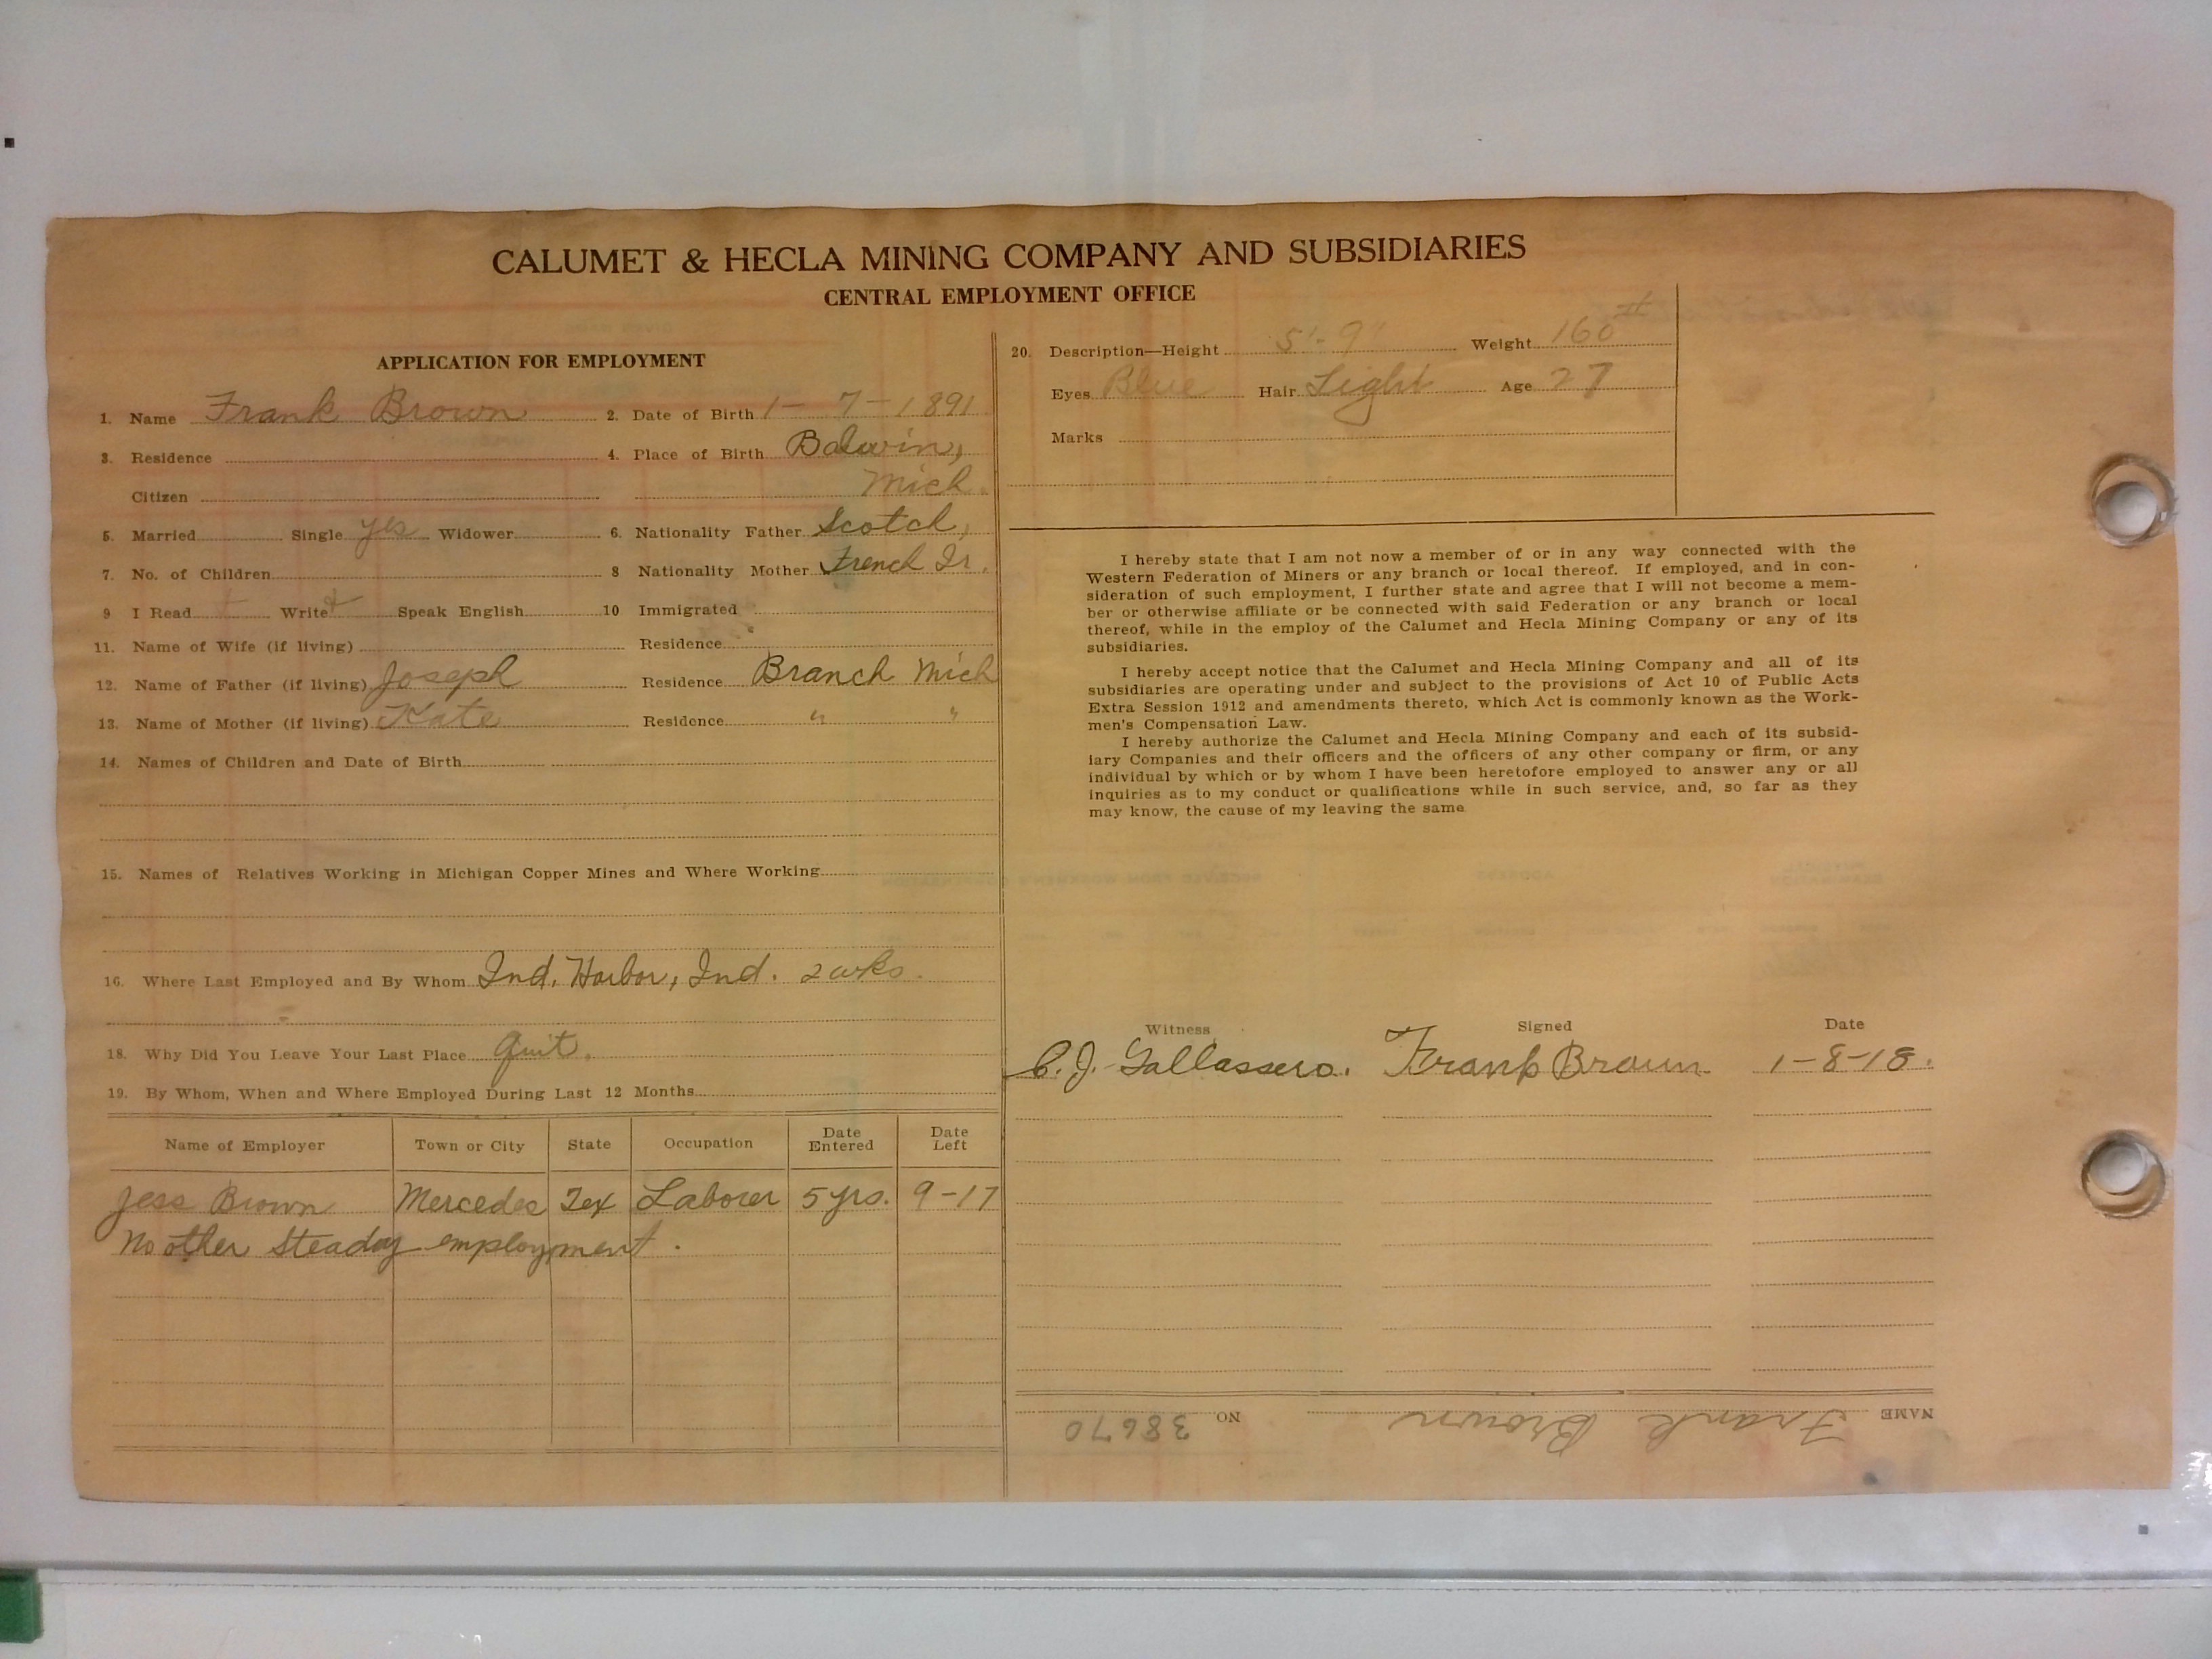 CALUMET & HECLA MINING COMPANY AND SUBSIDIARIES
CENTRAL EMPLOYMENT OFFICE
APPLICATION FOR EMPLOYMENT
1. Name Frank Brown 2. Date of Birth 1-7-1891
3. Residence 4. Place of Birth Baldwin,
Citizen Mich.
5. Married Single yes Widower 6. Nationality Father Scotch,
7. No. of Children 8 Nationality Mother French Ir.
9 I Read + Write + Speak English 10 Immigrated
11. Name of Wife (if living) Residence
12. Name of Father (if living) Joseph Residence Branch Mich
13. Name of Mother (if living) Kate Residence " "
14. Names of Children and Date of Birth
15. Names of Relatives Working in Michigan Copper Mines and Where Working
16. Where Last Employed and By Whom Ind. Harbor, Ind. 2 wks.
18. Why Did You Leave Your Last Place Quit.
19. By Whom, When and Where Employed During Last 12 Months
Name of Employer Town or City State Occupation Date Entered Date Left
Jess Brown Mercedes Tex Laborer 5 yrs. 9-17
No other steady employment.
20. Description—Height 5'-9" Weight 160#
Eyes Blue Hair Light Age 27
Marks
I hereby state that I am not now a member of or in any way connected with the
Western Federation of Miners or any branch or local thereof. If employed, and in con-
sideration of such employment, I further state and agree that I will not become a mem-
ber or otherwise affiliate or be connected with said Federation or any branch or local
thereof, while in the employ of the Calumet and Hecla Mining Company or any of its
subsidiaries.
I hereby accept notice that the Calumet and Hecla Mining Company and all of its
subsidiaries are operating under and subject to the provisions of Act 10 of Public Acts
Extra Session 1912 and amendments thereto, which Act is commonly known as the Work-
men's Compensation Law.
I hereby authorize the Calumet and Hecla Mining Company and each of its subsid-
iary Companies and their officers and the officers of any other company or firm, or any
individual by which or by whom I have been heretofore employed to answer any or all
inquiries as to my conduct or qualifications while in such service, and, so far as they
may know, the cause of my leaving the same
Witness Signed Date
C. J. Gallassero. Frank Brown 1-8-18.
NAME Frank Brown NO 38670